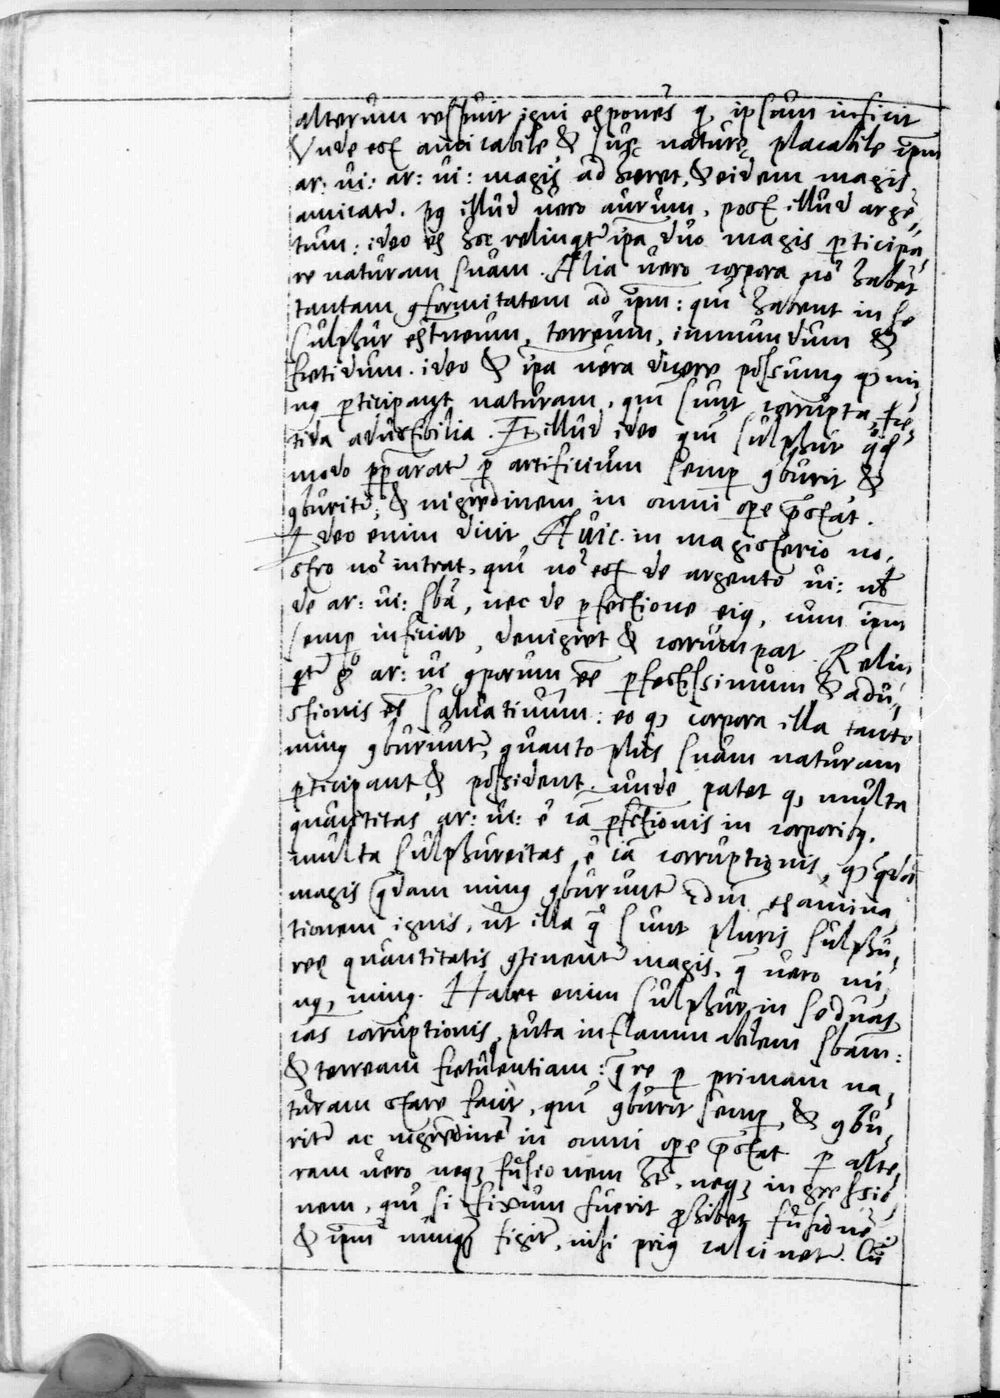 alterum respuit igni exponēs q, ipsum inficit
Unde est amicabile & suę naturę placabile ipm
ar: vi: ar: vi: magis adhæret, & eidem magis
amicatr. p9 illud vero aurum, post illud argē
tum: ideo ex hoc relinqtr ipa duo magis pticipa
re naturam suam. Alia vero corpora nō habēt
tantam 9formitatem ad ipm: qui habent in se
sulphur extneum, terreum, immundum &
fœtidum. ideo & ipa vera dicere possum9 q, mi
n9 pticipant naturam, qui sunt corrupta, fœ
tida adustibilia. Et illud ideo qui sulphur qōq
modo ppparatr p artificium semp 9burit &
9buritr, & nigredinem in omni ope pstat.
Ideo enim dicit Auic. in magisterio no,
stro nō intrat, qui nō est de argento vi: vl
de ar: vi: sba, nec de pfectione ei9, cum ipm
semp inficiat, denigret & corrumpat. Relin
qtr g° ar: vi 9porum eē pfectissimum & adu,
stionis eē salvativum: eo q, corpora illa tanto
min9 9buruntr, quanto plus suam naturam
pticipant & possident. unde patet q, multa
quantitas ar: vi: ē cā pfctionis in corporib9.
multa sulphureitas ē cā corruptionis, q, qdā
magis qdam min9 9buruntr sdm examina
tionem ignis, ut illa q sunt pluris sulphu,
reę quantitatis 9tinentr magis, q vero mi
n9, min9. Habet enim sulphur in se duas
cās corruptionis, puta inflammabilem sbam:
& terream fœtulentiam: qre p primam na,
turam stare facit, qui 9burit semp, & 9bu,
ritr ac nigredinē in omni ope pstat p alte,
ram vero neq3 fusionem ht, neq3 ingressio
nem, qui si fixum fuerit phibet fusionē
& ipm nunq figitr, nisi pri9 calcinetr. Cū